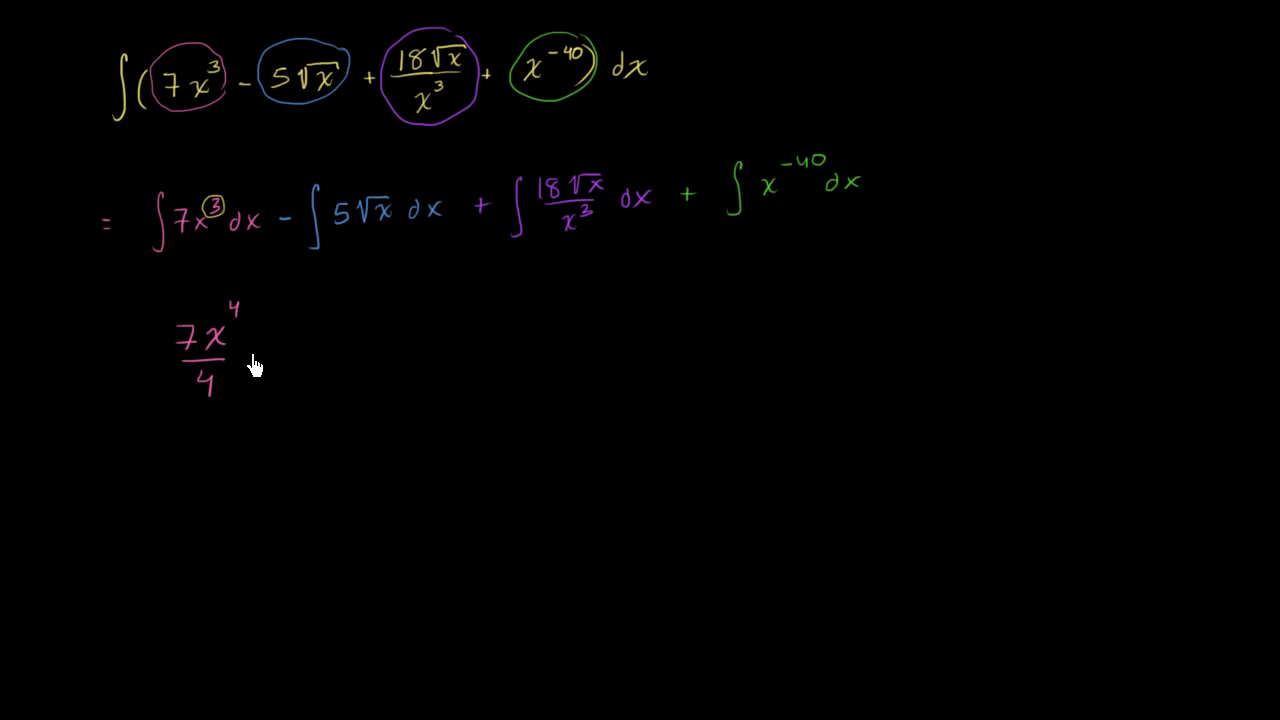 ∫(7x³ - 5√x + 18√x/x³ + x⁻⁴⁰) dx
= ∫7x³dx - ∫5√x dx + ∫18√x/x³ dx + ∫x⁻⁴⁰dx
7x⁴/4